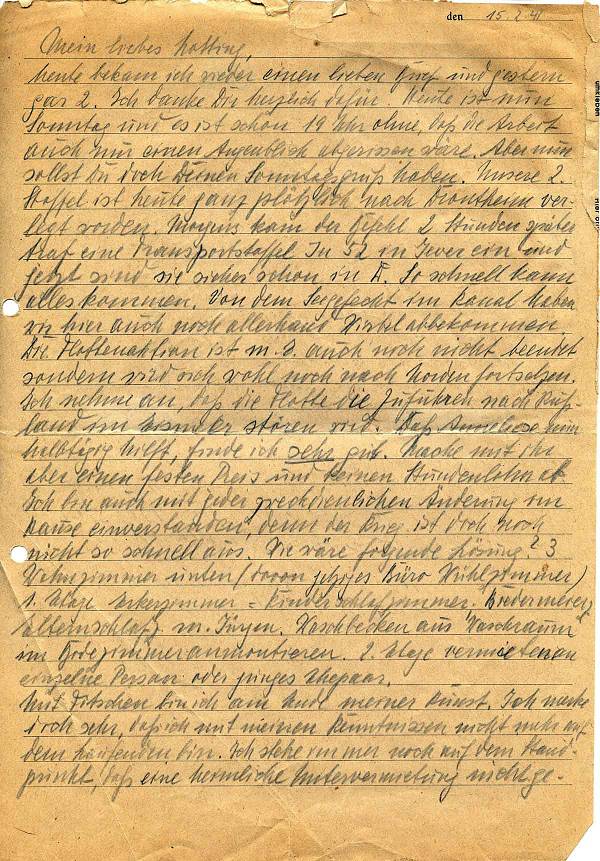 den 15.2.41
Mein liebes Motting,
heute bekam ich wieder einen lieben Brief und gestern
gar 2. Ich danke Dir herzlich dafür. Heute ist nun
Sonntag und es ist schon 14 Uhr ohne, daß die Arbeit
auch nur einen Augenblick abgerissen wäre. Aber nun
sollst Du doch Deinen Sonntagsgruß haben. Unsere 2.
Staffel ist heute ganz plötzlich nach Drontheim ver-
legt worden. Morgens kam der Befehl 2 Stunden später
traf eine Transportstaffel Ju 52 in Jever ein und
jetzt sind sie sicher schon in D. So schnell kann
alles kommen. Von dem Seegefecht im Kanal haben
wir hier auch noch allerhand abbekommen.
Die Flottenaktion ist m. E. auch noch nicht beendet
sondern wird sich wohl noch nach Norden fortsetzen.
Ich nehme an, daß die Flotte die Zufuhren nach Ruß-
land im stören wird. Daß Anneliese
halbtägig hilft, finde ich sehr gut. Mache mit ihr
aber einen festen Preis und keinen Stundenlohn ab.
Ich bin auch mit jeder Änderung im
Hause einverstanden, denn der Krieg ist doch noch
nicht so schnell aus. Wie wäre folgende Lösung? 3
Wohnzimmer unten (davon jetziges Büro Wühlzimmer)
1. Etage Erkerzimmer = Kinderschlafzimmer. Biedermeierz.
Elternschlafz. m. Jürgen. Waschbecken aus Waschraum
im anmontieren. 2. Etage vermieten an
einzelne Person oder junges Ehepaar.
Mit bin ich am Ende meiner Kunst. Ich merke
doch sehr, daß ich mit meinen Kenntnissen nicht mehr auf
dem Laufenden bin. Ich stehe immer noch auf dem Stand-
punkt, daß eine heimliche Untervermietung nicht ge-